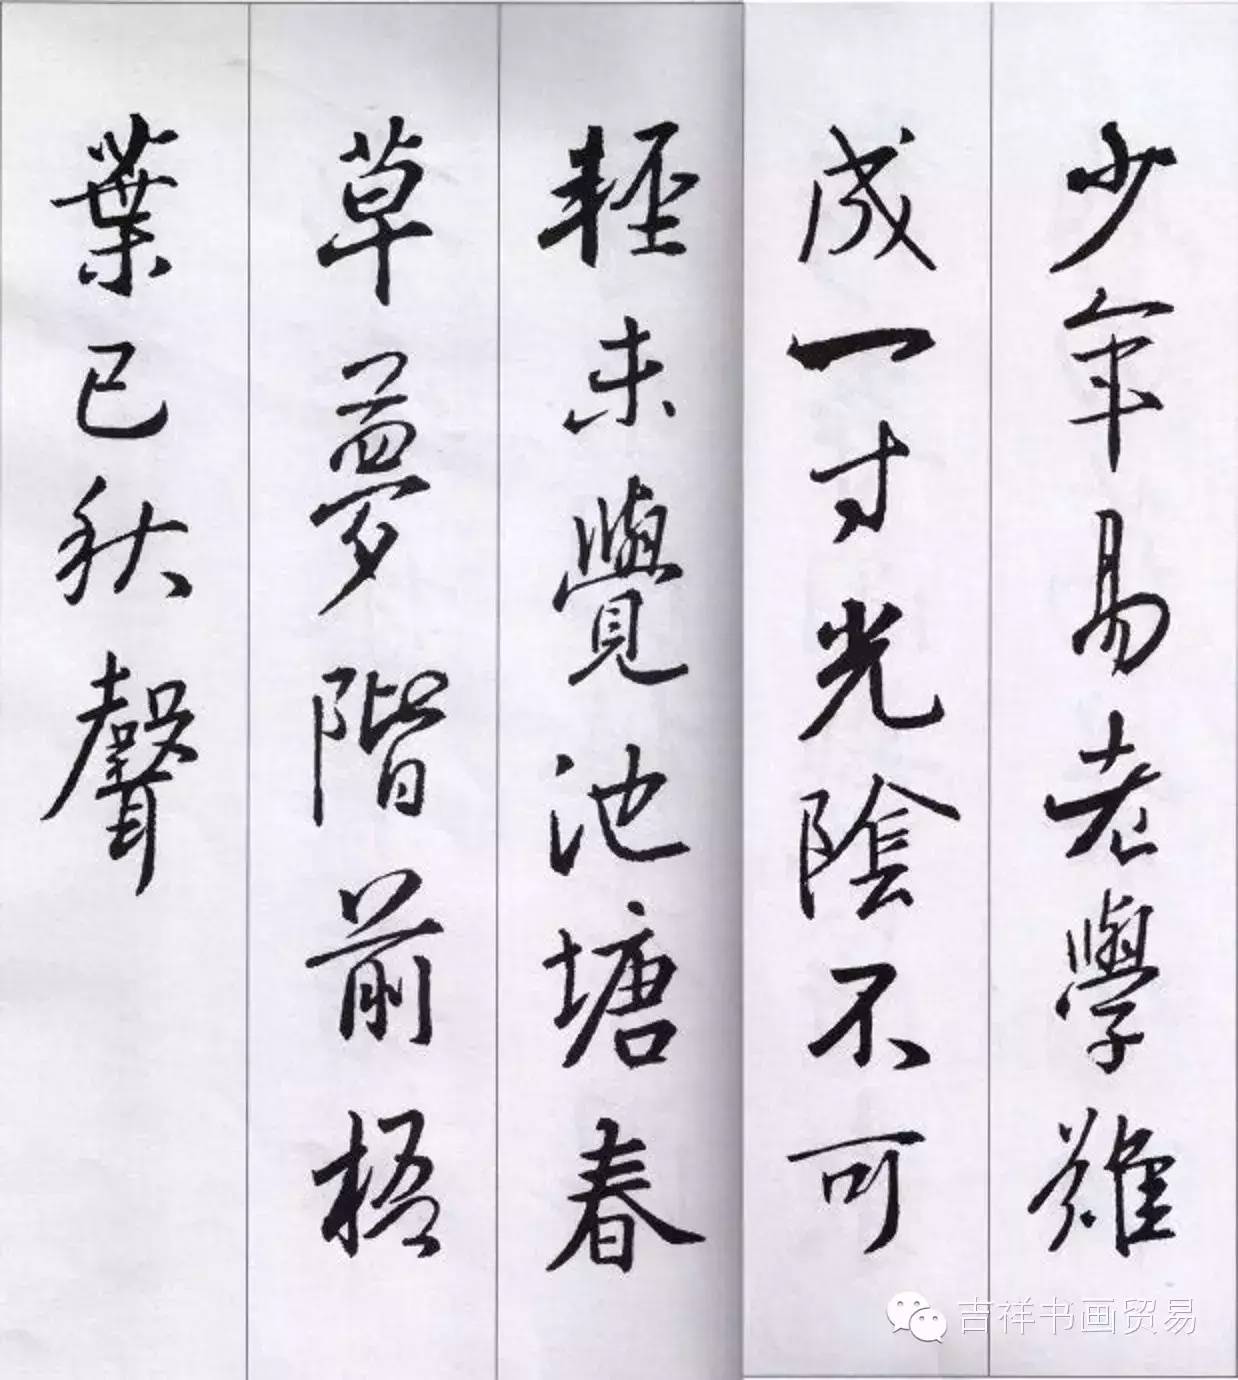 少年易老學難
成一寸光陰不可
輕未覺池塘春
草夢階前梧
葉已秋聲
吉祥书画贸易